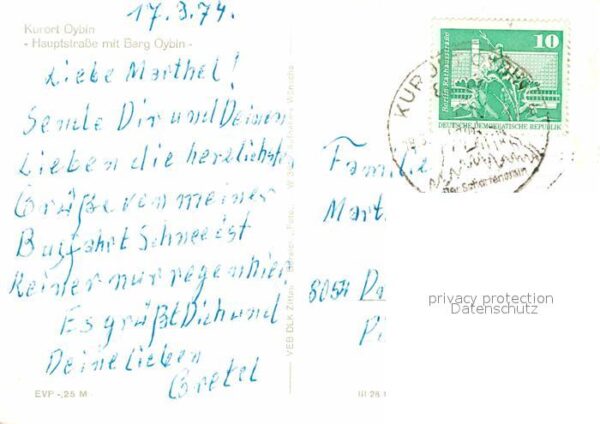 17.3.74.
Kurort Oybin
- Hauptstraße mit Berg Oybin -
Liebe Marthel!
Sende Dir und Deinen
Lieben die herzlichsten
Grüße von meiner
Busfahrt Schnee ist
Keiner nur regen hier
Es grüßt Dich und
Deine Lieben
Gretel
EVP -,25 M
VEB DLK Zittau
III 28
10
Berlin, Rathausstraße
DEUTSCHE DEMOKRATISCHE REPUBLIK
KURORT
Familie
Mart
8054
privacy protection
Datenschutz